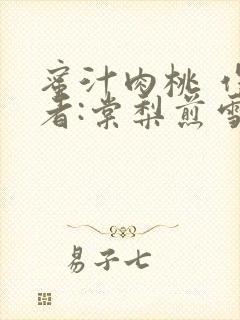 蜜汁肉桃 作
者:棠梨煎雪
易子七